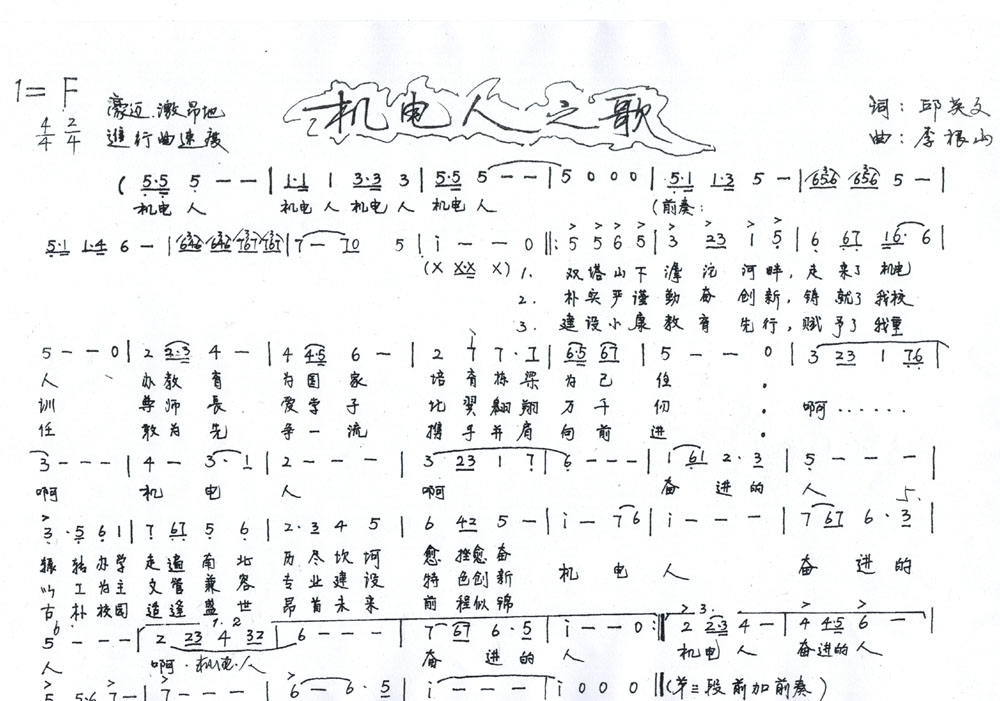 1= F
4/4 2/4
豪迈.激昂地
進行曲速度
机电人之歌
词: 邱英文
曲: 李根山
( 5·5 5 - - | 1·1 1 3·3 3 | 5·5 5 - - | 5 0 0 0 | 5·1 1·3 5 - | 656 656 5 - |
机电人 机电人 机电人 机电人 (前奏:
5·1 1·4 6 - | 646 646 767 767 | 7 - 70 5 | i - - 0 ‖: 5 5 6 5 | 3 23 1 5 | 6 67 16· 6 |
(X X·X X)
1. 双塔山下滹沱河畔, 走来了机电
2. 朴实严谨勤奋创新, 铸就了我校
3. 建设小康教育先行, 赋予了我重
5 - - 0 | 2 2·3 4 - | 4 4·5 6 - | 2 7 7·7 | 6·5 67 | 5 - - 0 | 3 23 1 76 |
人 办教育 为国家 培育栋梁为己任.
训 尊师長 爱学子 比翼翱翔万千仞. 啊······
任 敢为先 争一流 携手并肩向前进.
3 - - - | 4 - 3·1 | 2 - - - | 3 23 1 7 | 6 - - - | 1 61 2·3 | 5 - - - |
啊 机电人 啊 奋进的人
3·5 6 1 | 7 67 5 6 | 2·3 4 5 | 6 42 5 - | i - 76 | i - - - | 7 67 6·3 |
办学 走遍南北 历尽坎坷 愈挫愈奋
以工为主 文管兼容 专业建设 特色创新 机电人 奋进的
古朴校园 造逢盛世 昂首未来 前程似锦
5 - - - | 2 23 4 32 | 6 - - - | 7 67 6·5 | i - - 0 :‖ 2 2·3 4 - | 4 4·5 6 - |
1. 2 3.
人 啊·机电·人 奋进的人 机电人 奋进的人
5 5·6 7 - | 7 - - - | 6 - 6·5 | i - - - | i 0 0 0 ‖ (第三段前加前奏)